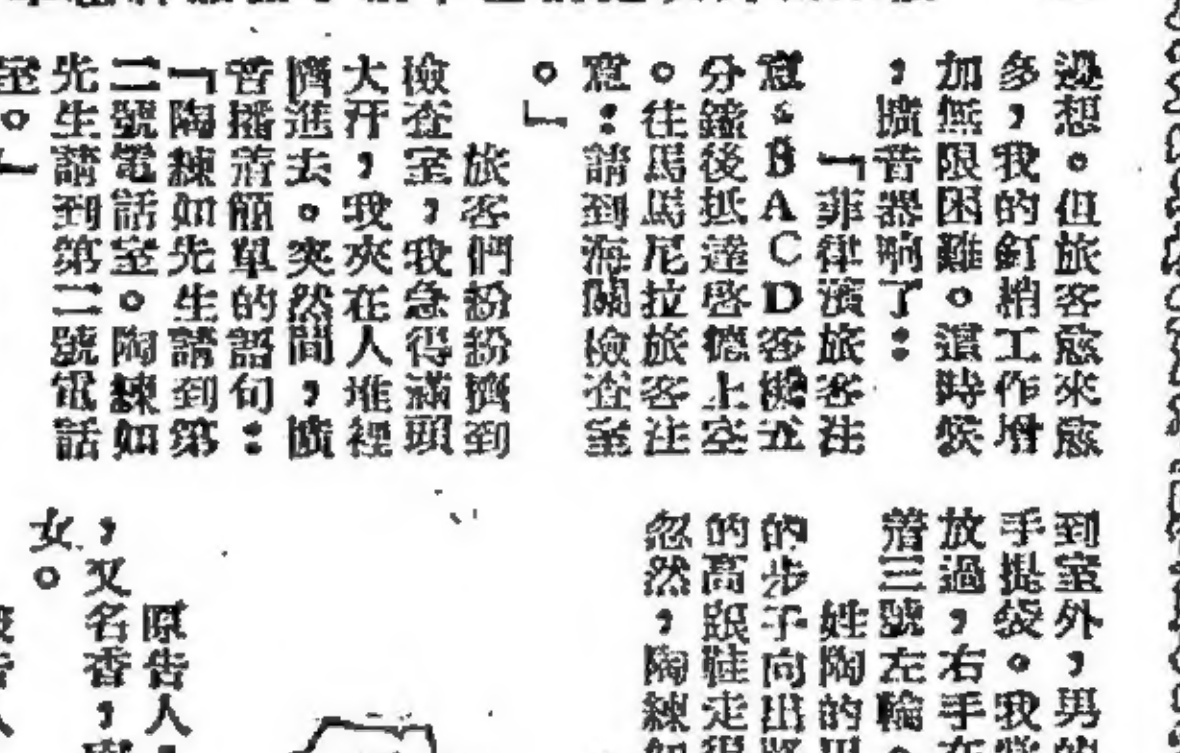 過想。但旅客愈來愈
多，我的釘梢工作增
加無限困難。這時候
，擴音器响了：
「菲律濱旅客注
意。BACD客機五
分鐘後抵達啓德上空
。往馬馬尼拉旅客注
意：請到海關檢查室
。」
旅客們紛紛擠到
檢查室，我急得滿頭
大汗，我夾在人堆裡
擠進去。突然間，擴
音播着簡單的語句：
「陶練如先生請到第
二號電話室。陶練如
先生請到第二號電話
室。」
到室外，男的
手提袋。我
放過，右手在
着三號左輪。
姓陶的
的步子向出
的高跟鞋走得
忽然，陶練如
原告人，
，又名香，
女。